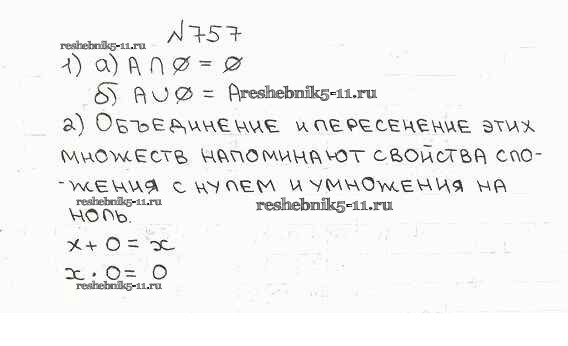 №757
reshebnik5-11.ru
1) а) А ∩ ∅ = ∅
б) А ∪ ∅ = А
reshebnik5-11.ru
2) Объединение и пересенение этих
множеств напоминают свойства сло-
-жения с нулем и умножения на
reshebnik5-11.ru
reshebnik5-11.ru
ноль.
x + 0 = x
x · 0 = 0
reshebnik5-11.ru